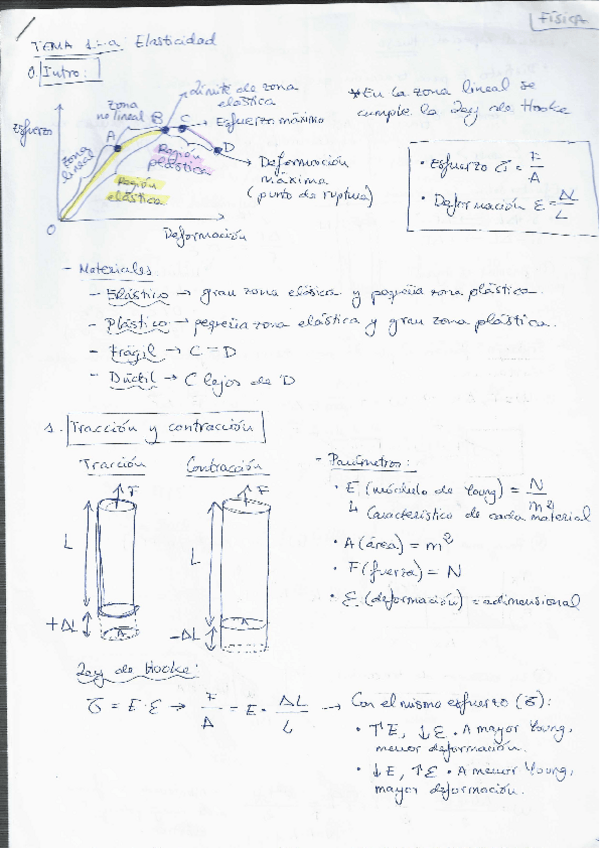 FÍSICA
TEMA 1.-a: Elasticidad
0. Intro:
zona no lineal
límite de zona elástica
Esfuerzo máximo
Esfuerzo
A
B
C
D
zona lineal
Región plástica
Región elástica
Deformación máxima (punto de ruptura)
O
Deformación
*En la zona lineal se
cumple la Ley de Hooke
· Esfuerzo σ = F/A
· Deformación ε = ΔL/L
- Materiales
- Elástico → gran zona elásica y pequeña zona plástica.
- Plástico → pequeña zona elástica y gran zona plástica.
- Frágil → C = D
- Dúctil → C lejos de D
1. Tracción y contracción
Tracción
Contracción
F
F
L
L
+ΔL
A
-ΔL
A
- Parámetros:
· E (módulo de Young) = N/m²
↳ Característico de cada material
· A (área) = m²
· F (fuerza) = N
· ε (deformación) = adimensional
Ley de Hooke:
σ = E · ε → F/A = E · ΔL/L → Con el mismo esfuerzo (σ):
· ↑E, ↓ε. A mayor Young,
menor deformación.
· ↓E, ↑ε. A menor Young,
mayor deformación.